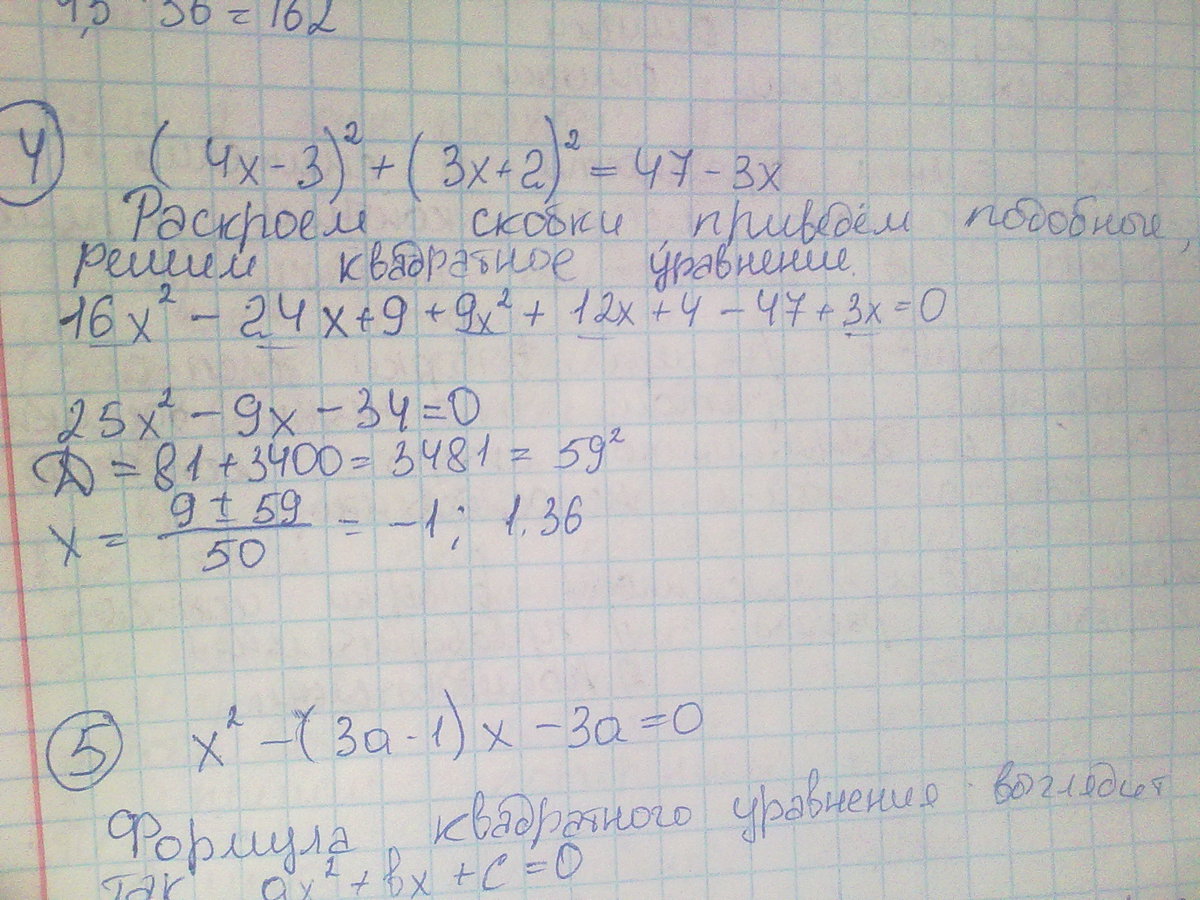 36 = 162
4
(4x-3)² + (3x+2)² = 47 - 3x
Раскроем скобки приведём подобные,
решим квадратное уравнение.
16x² - 24x + 9 + 9x² + 12x + 4 - 47 + 3x = 0
25x² - 9x - 34 = 0
D = 81 + 3400 = 3481 = 59²
x = (9 ± 59)/50 = -1; 1.36
5
x² - (3a - 1)x - 3a = 0
Формула квадратного уравнения выглядит
так ax² + bx + c = 0